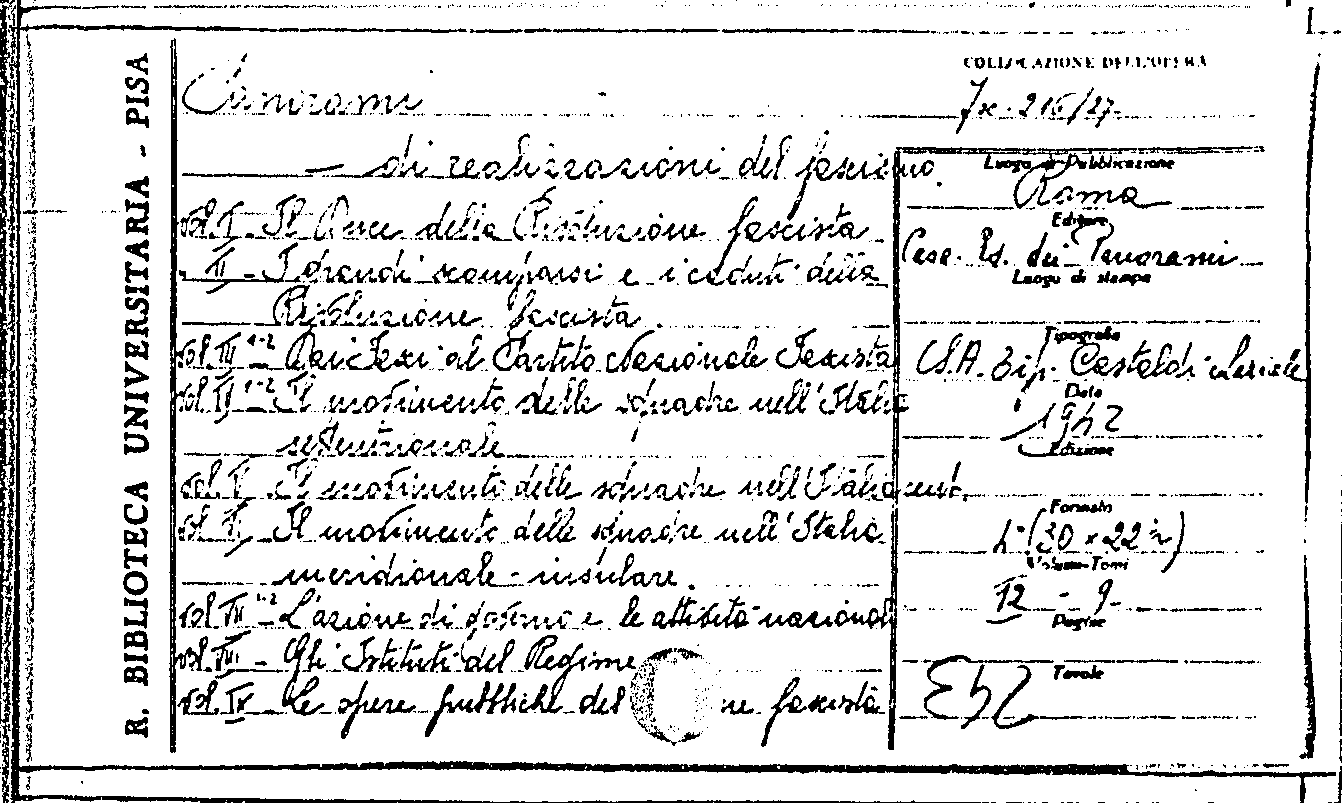 R. BIBLIOTECA UNIVERSITARIA - PISA
COLLOCAZIONE DELL'OPERA
Panorami
216/27
di realizzazioni del fascismo.
vol. I - Il Duce della Rivoluzione fascista.
" II - I grandi scomparsi e i caduti della
Rivoluzione fascista.
vol. III 1-2 Dai Fasci al Partito Nazionale Fascista
vol. IV 1-2 Il movimento delle squadre nell'Italia
settentrionale
vol. V - Il movimento delle squadre nell'Italia cent.
vol. VI Il movimento delle squadre nell'Italia
meridionale - insulare.
vol. VII 1-2 L'azione di governo e le attività nazionali
vol. VIII - Gli Istituti del Regime
vol. IX - Le opere pubbliche del ne fascista
Luogo di Pubblicazione
Roma
Editore
Casa Ed. dei Panorami
Luogo di stampa
Tipografia
S.A. Tip. Castaldi
Data
1942
Edizione
Formato
4° (30 x 22 ½)
Volumi-Tomi
- 9-
Pagine
Tavole